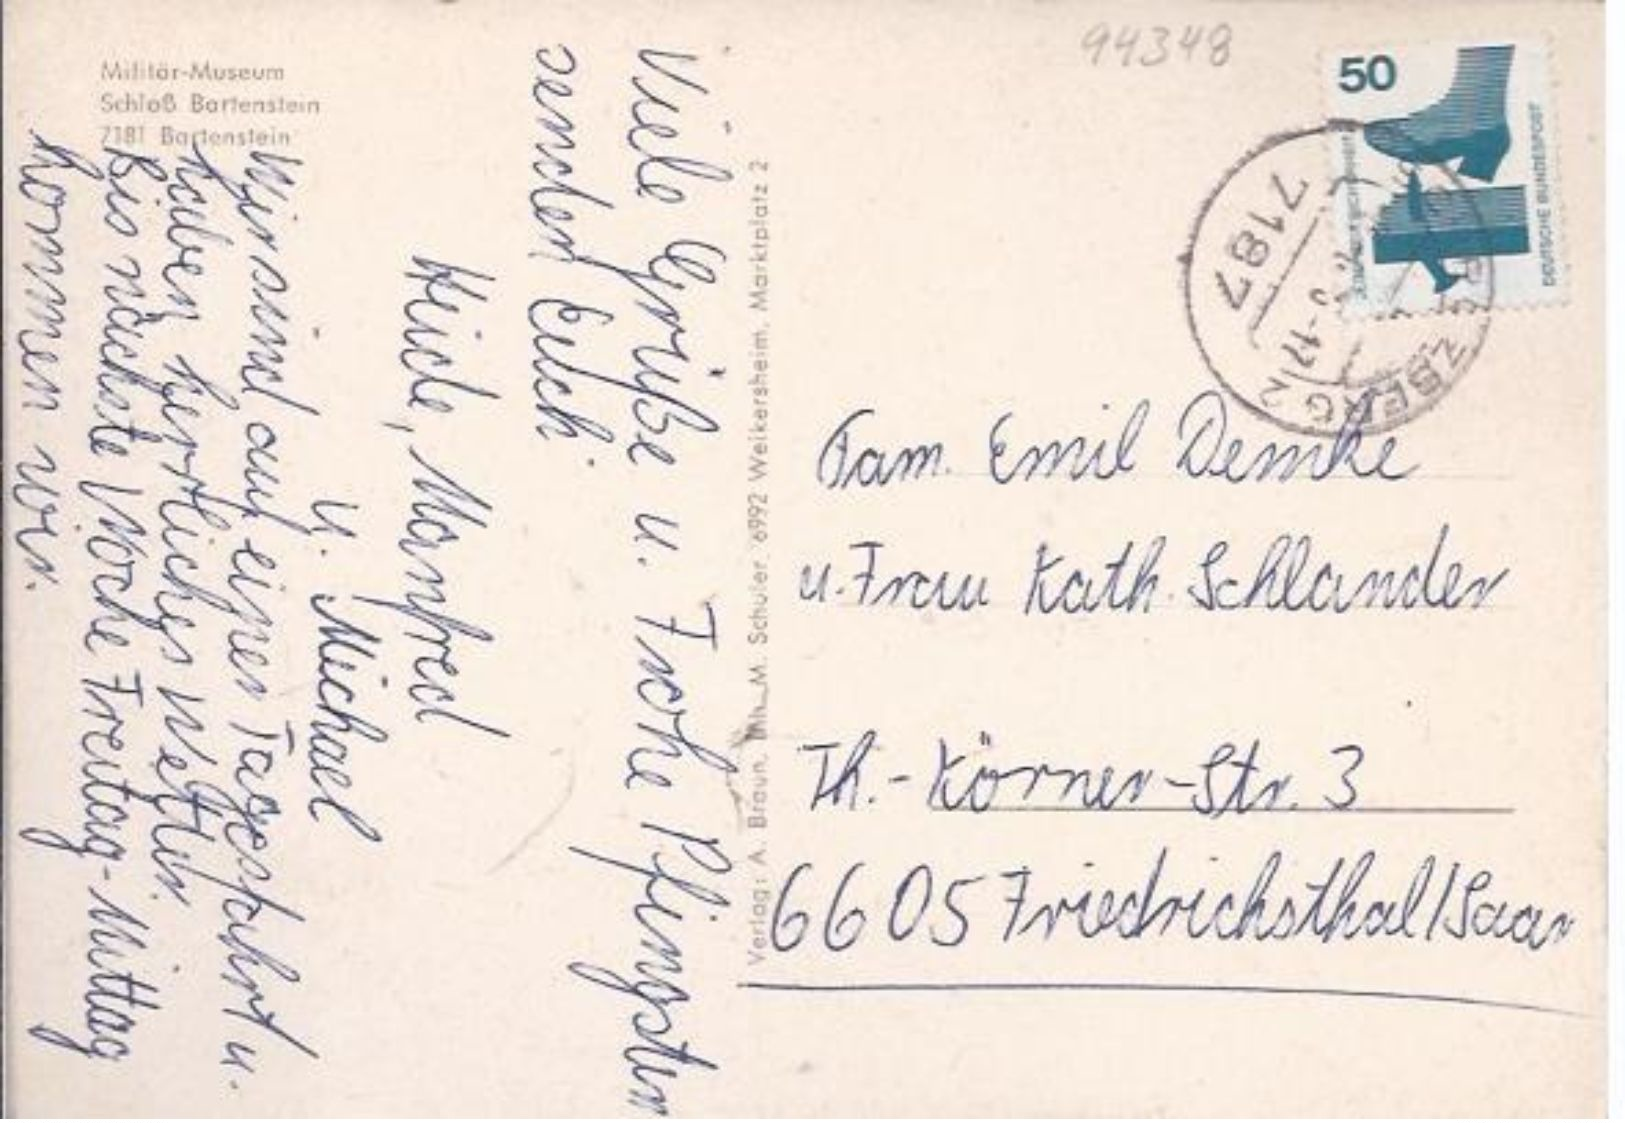 Militär-Museum
Schloß Bartenstein
7181 Bartenstein
Viele Grüße u. Frohe Pfingsten
senden Euch
Heide, Manfred
u. Michael
Wir sind auf einer Tagesfahrt u.
haben herrliches Wetter.
Bis nächste Woche Freitag-Mittag
kommen wir.
Verlag: A. Braun, Inh. M. Schuler, 6992 Weikersheim, Marktplatz 2
94348
50
DEUTSCHE BUNDESPOST
7187
ZBERG
Fam. Emil Demke
u. Frau Kath. Schlander
Th.-Körner-Str. 3
6605 Friedrichsthal/Saar